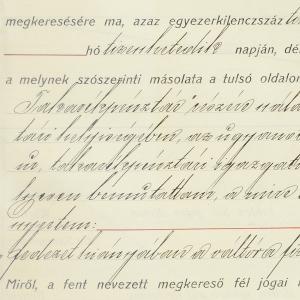 megkeresésére ma, azaz egyezerkilenczszáz
hó tizenhetedik napján, dé
a melynek szószerinti másolata a tulsó oldalon
Takarékpénztár részvénytá
tári helyiségében, az ugyano
ur, takarékpénztári igazgat
lyesen bemutattam, a mire
nyertem:
fedezet hiányában a váltó a fi
Miről, a fent nevezett megkereső fél jogai